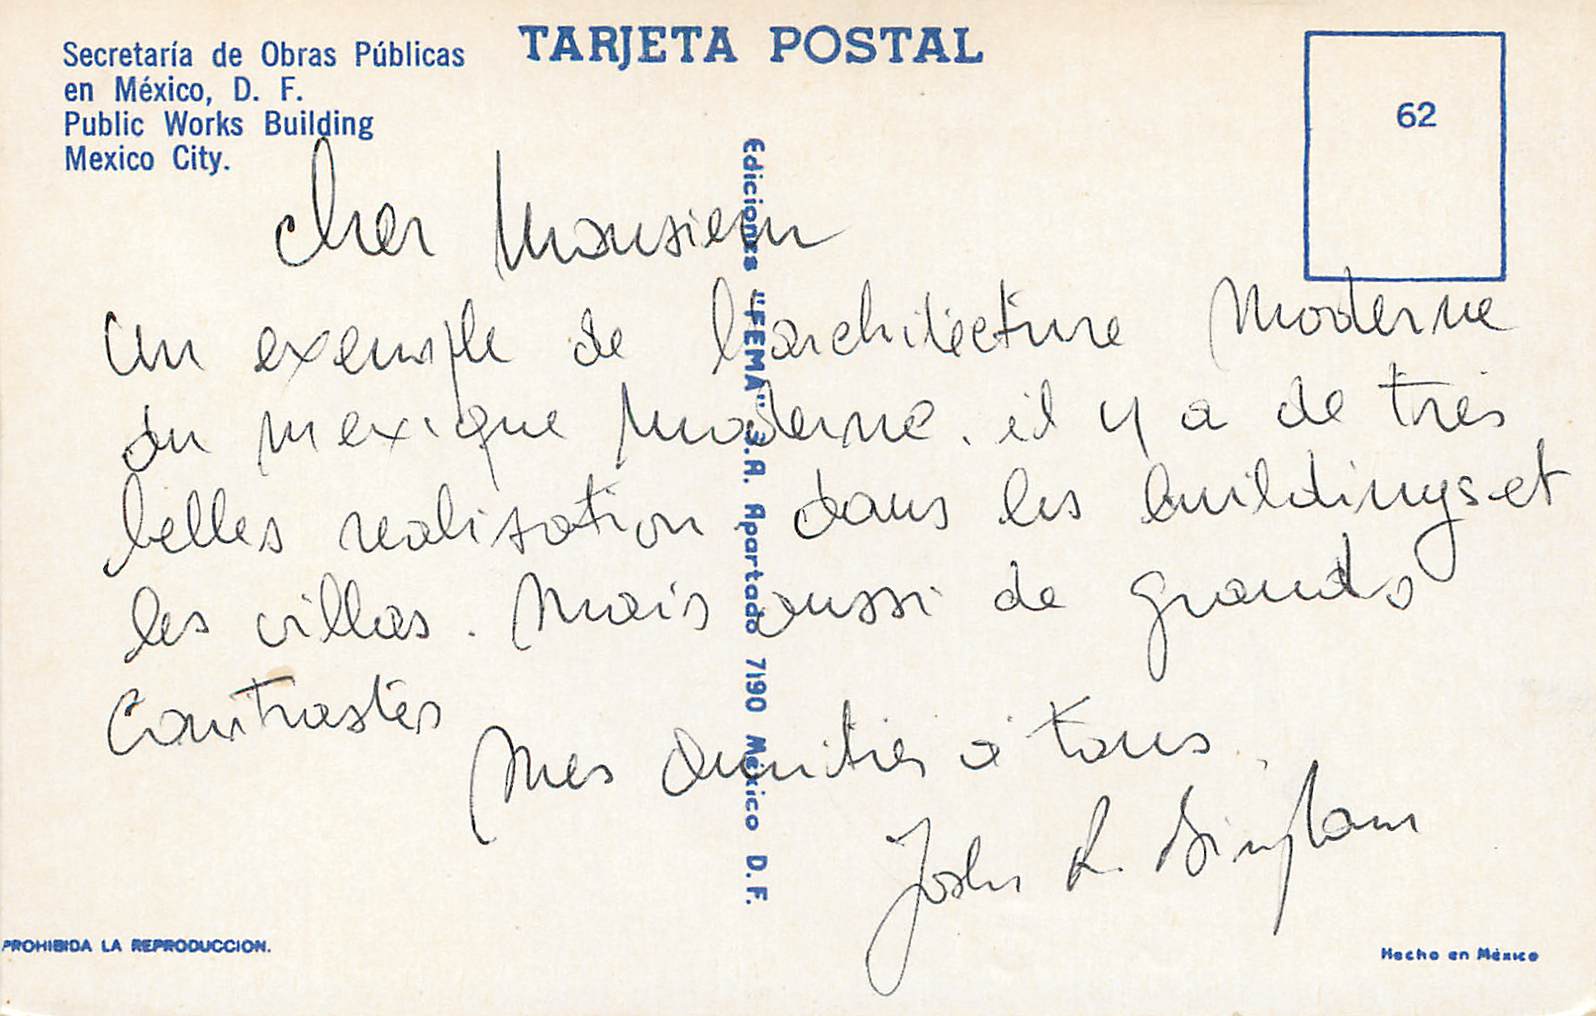 TARJETA POSTAL
Secretaría de Obras Públicas
en México, D. F.
Public Works Building
Mexico City.
62
Cher Monsieur
Un exemple de l'architecture Moderne
du mexique Moderne. il y a de très
belles realisation dans les buildings et
les villas. Mais aussi de grands
Contrastes
Mes Amitiés à tous.
John R. Bingham
Ediciones "FEMA" S.A. Apartado 7190 México D.F.
PROHIBIDA LA REPRODUCCION.
Hecho en México